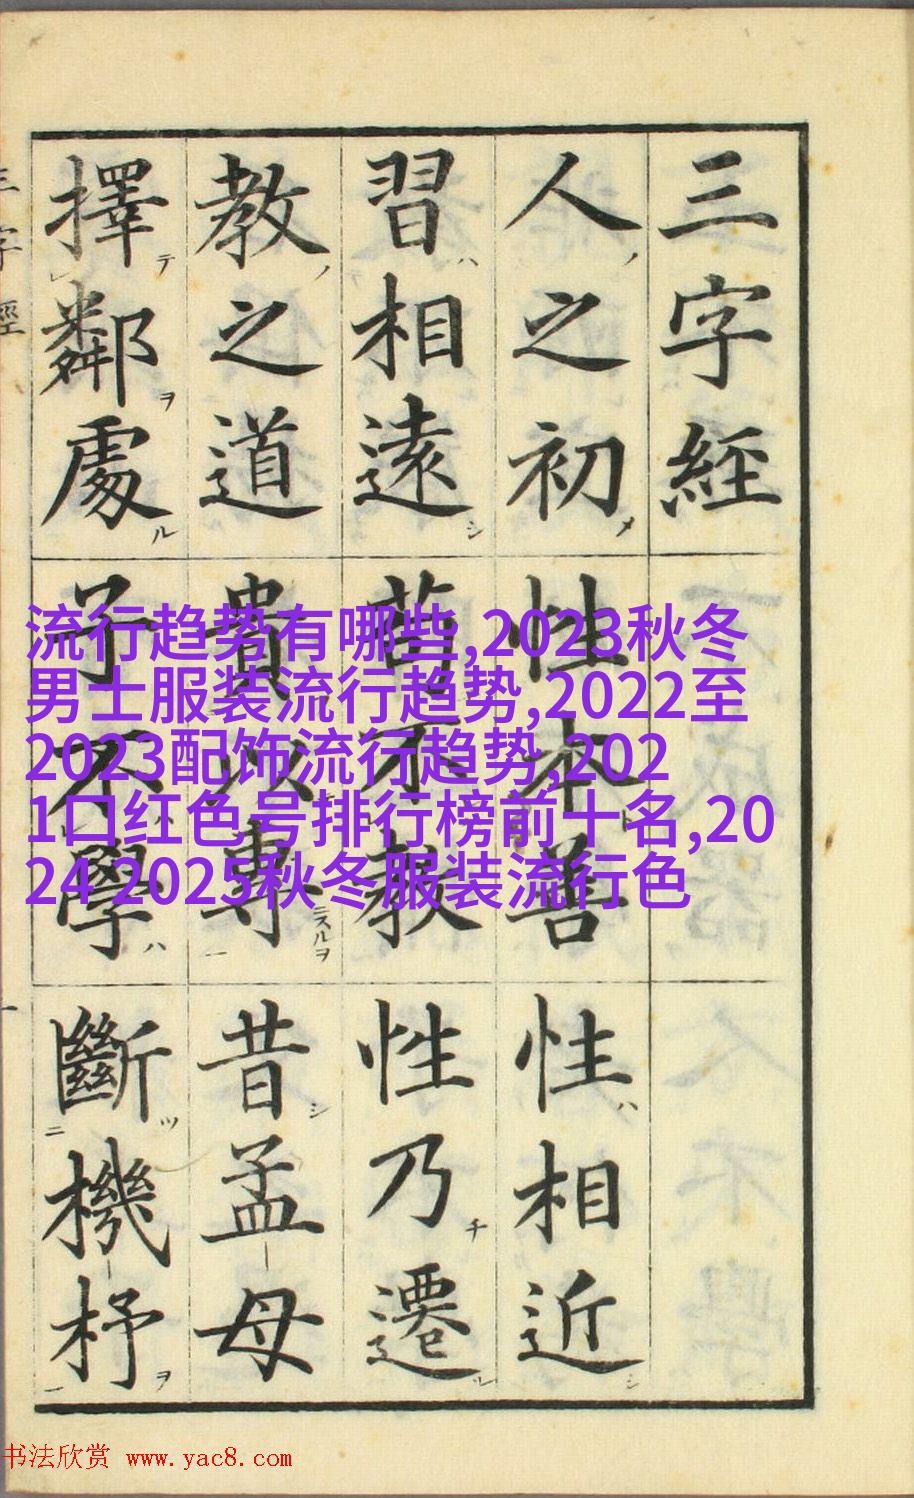 三字經
人之初 性本善 性相近
習相遠 苟不教 性乃遷
教之道 貴以專 昔孟母
擇鄰處 子不學 斷機杼
三字經
流行趋势有哪些,2023秋冬
男士服装流行趋势,2022至
2023配饰流行趋势,202
1口红色号排行榜前十名,20
24 2025秋冬服装流行色
书法欣赏 www.yac8.com